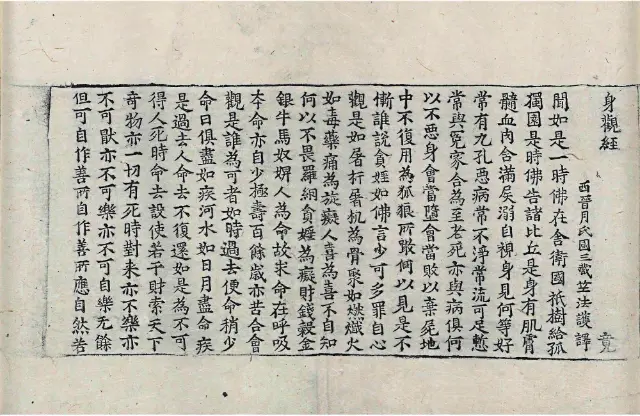 身觀經 竟
西晉月氏國三藏竺法護譯
聞如是一時佛在舍衛國祇樹給孤
獨園是時佛告諸比丘是身有肌膚
髓血肉含滿屎溺自視身見何等好
常有九孔惡病常不淨常流可足慙
常與冤家合為至老死亦與病俱何
以不惡身會當墮會當敗以棄冢地
中不復用為狐狼所噉何以見是不
慚誰說貪婬如佛言少可多罪自心
觀是如屠杅屠杌為骨聚如燃熾火
如毒藥痛為旋癡人喜為喜不自知
何以不畏羅網貪婬為癡財錢穀金
銀牛馬奴婢人為命故求命在呼吸
本命亦自少極壽百餘歲亦苦合會
觀是誰為可者如時過去便命稍少
命日俱盡如疾河水如日月盡命疾
是過去人命去不復還如是為不可
得人死時命去設使若干財索天下
奇物亦一切有死時對來亦不樂亦
不可猒亦不可樂亦不可自樂无餘
但可自作善所自作善所應自然若